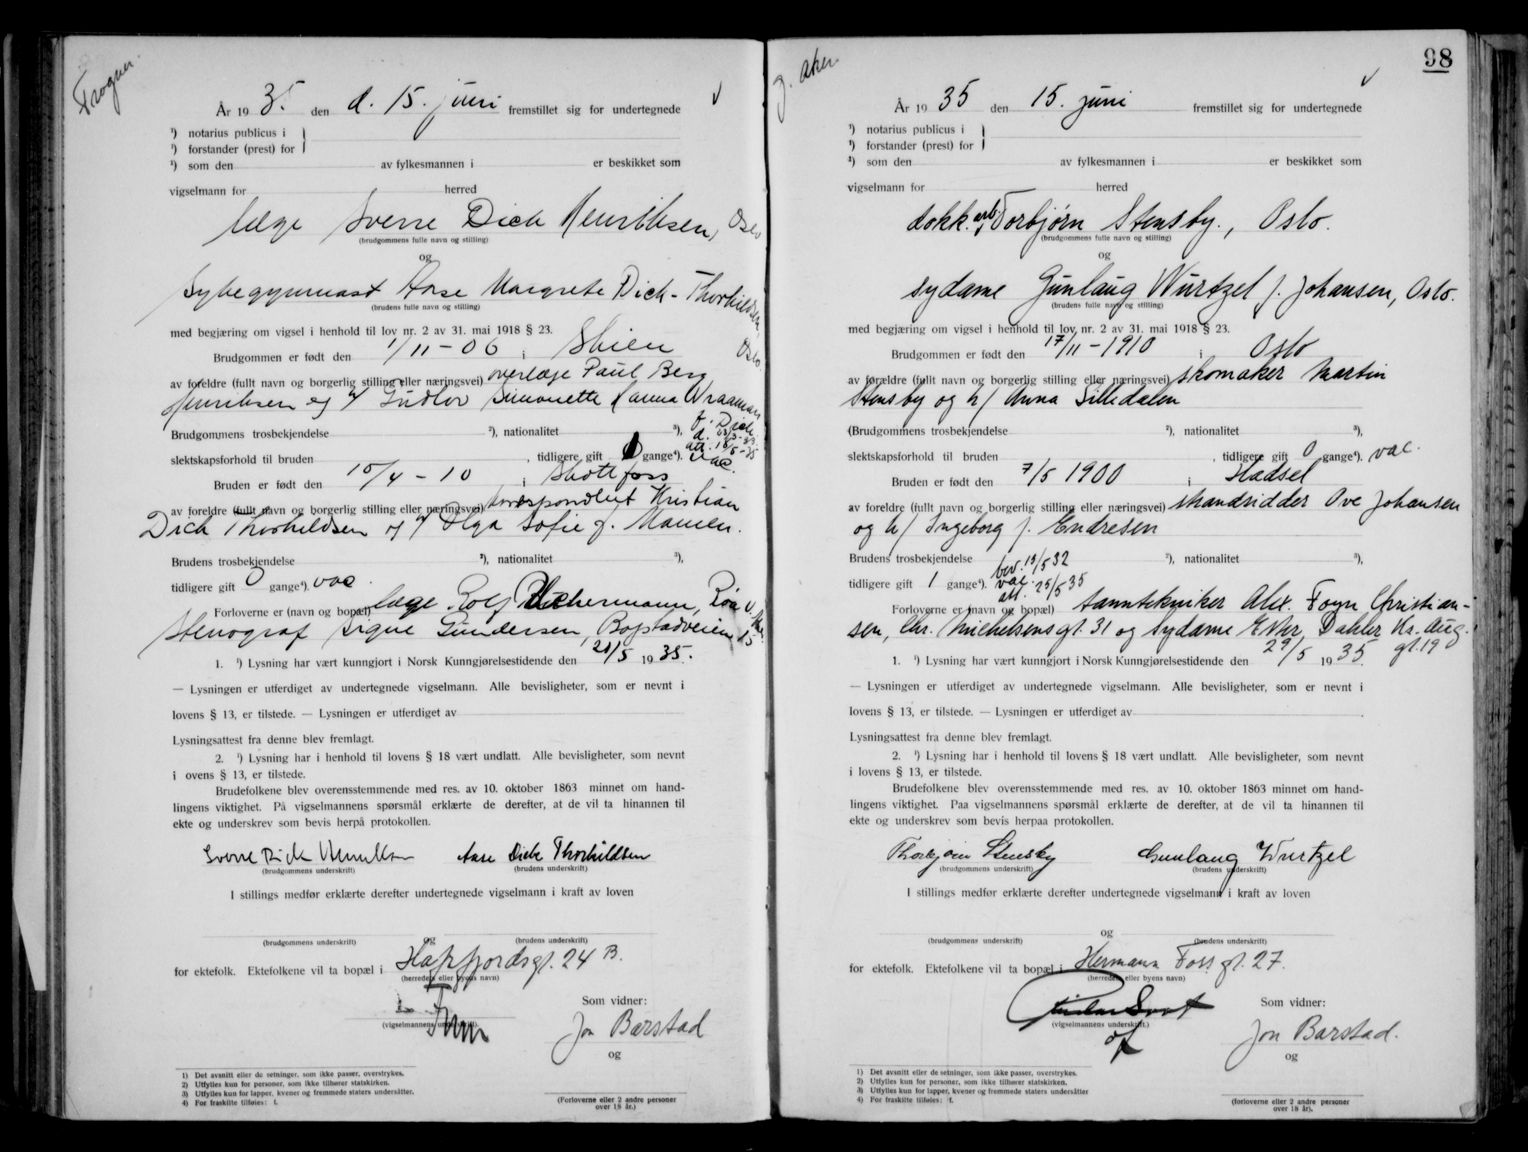 Frogner.
År 19 35 den d. 15. juni fremstillet sig for undertegnede
¹) notarius publicus i
¹) forstander (prest) for
¹) som den av fylkesmannen i er beskikket som
vigselmann for herred
læge Sverre Dick Henriksen, Oslo
(brudgommens fulle navn og stilling)
og
Sykegymnast Aase Margrete Dick-Thorkildsen, Oslo
(brudens fulle navn og stilling)
med begjæring om vigsel i henhold til lov nr. 2 av 31. mai 1918 § 23.
Brudgommen er født den 1/11-06 i Skien
av foreldre (fullt navn og borgerlig stilling eller næringsvei) overlæge Paul Berg
Henriksen og Gudlov Simonette Hanna Wraaman
f. Dick
Brudgommens trosbekjendelse ²), nationalitet ³),
slektskapsforhold til bruden , tidligere gift gange⁴). vac.
Bruden er født den 10/4-10 i Skotfoss
av foreldre (fullt navn og borgerlig stilling eller næringsvei) korrespondent Kristian
Dick Thorkildsen og Olga Sofie f. Hansen.
Brudens trosbekjendelse ²), nationalitet ³),
tidligere gift 0 gange⁴) vac.
Forloverne er (navn og bopel) læge Rolf Dickermann, Røa V. Aker.
Stenograf Signe Gundersen, Bogstadveien 15
1. ¹) Lysning har vært kunngjort i Norsk Kunngjørelsestidende den 21/5 1935.
— Lysningen er utferdiget av undertegnede vigselmann. Alle bevisligheter, som er nevnt i
lovens § 13, er tilstede. — Lysningen er utferdiget av
Lysningsattest fra denne blev fremlagt.
2. ¹) Lysning har i henhold til lovens § 18 vært undlatt. Alle bevisligheter, som nevnt
i ovens § 13, er tilstede.
Brudefolkene blev overensstemmende med res. av 10. oktober 1863 minnet om hand-
lingens viktighet. På vigselmannens spørsmål erklærte de derefter, at de vil ta hinannen til
ekte og underskrev som bevis herpå protokollen.
Sverre Dick Henriksen Aase Dick Thorkildsen
(brudgommens underskrift) (brudens underskrift)
I stillings medfør erklærte derefter undertegnede vigselmann i kraft av loven
og
(brudgommens underskrift) (brudens underskrift)
for ektefolk. Ektefolkene vil ta bopæl i Hakkfjordsgt. 24 B.
(herredets eller byens navn)
Som vidner:
(vigselmannens underskrift).
Jon Barstad
og
1) Det avsnitt eller de setninger, som ikke passer, overstrykes.
2) Utfylles kun for personer, som ikke tilhører statskirken.
3) Utfylles kun for lapper, kvener og fremmede staters undersåtter.
4) For fraskilte tilføies: f.
(Forloverne eller 2 andre personer
over 18 år.)
g. Aker
98
År 19 35 den 15. juni fremstillet sig for undertegnede
¹) notarius publicus i
¹) forstander (prest) for
²) som den av fylkesmannen i er beskikket som
vigselmann for herred
dokk.arb. Torbjørn Stensby., Oslo.
(brudgommens fulle navn og stilling)
og
sydame Gunlaug Wurtzel f. Johansen, Oslo.
(brudens fulle navn og stilling)
med begjæring om vigsel i henhold til lov nr. 2 av 31. mai 1918 § 23.
Brudgommen er født den 17/11-1910 i Oslo
av forældre (fullt navn og borgerlig stilling eller næringsvei) skomaker Martin
Stensby og h/ Anna Lilledalen
(Brudgommens trosbekjendelse ²), nationalitet ³),
slektskapsforhold til bruden , tidligere gift 0 gange⁴), vac.
Bruden er født den 7/5 1900 i Hadsel
av foreldre (fullt navn og borgerlig stilling eller næringsvei) skandsidder Ove Johansen
og h/ Ingeborg f. Endresen
Brudens trosbekjendelse ²), nationalitet ³),
tidligere gift 1 gange⁴). bev. 13/5 32
vac.
att. 25/5 35
Forloverne er (navn og bopæl) tanntekniker Alex. Foyn Christian-
sen, Chr. Michelsensgt. 31 og sydame Esther Dahler Kr. Aug.
gt. 19
1. ¹) Lysning har vært kunngjort i Norsk Kunngjørelsestidende den 29/5 1935.
— Lysningen er utferdiget av undertegnede vigselmann. Alle bevisligheter, som er nevnt i
lovens § 13, er tilstede. — Lysningen er utferdiget av
Lysningsattest fra denne blev fremlagt.
2. ¹) Lysning har i henhold til lovens § 18 vært undlatt. Alle bevisligheter, som nevnt
i lovens § 13, er tilstede.
Brudefolkene blev overensstemmende med res. av 10. oktober 1863 minnet om hand-
lingens viktighet. Paa vigselmannens spørsmål erklærte de derefter, at de vil ta hinannen til
ekte og underskrev som bevis herpaa protokollen.
Thorbjørn Stensby Gunlaug Wurtzel
(brudgommens underskrift) (brudens underskrift)
I stillings medfør erklærte derefter undertegnede vigselmann i kraft av loven
og
(brudgommens underskrift) (brudens underskrift)
for ektefolk. Ektefolkene vil ta bopæl i Hermann Foss gt. 27.
(herredets eller byens navn)
Som vidner:
(vigselmannens underskrift.)
Jon Barstad.
og
1) Det avsnitt eller de setninger, som ikke passer, overstrykes.
2) Utfylles kun for personer, som ikke tilhører statskirken.
3) Utfylles kun for lapper, kvener og fremmede staters undersåtter
4) For fraskilte tilføies: f.
(forloverne eller 2 andre personer
over 18 år).